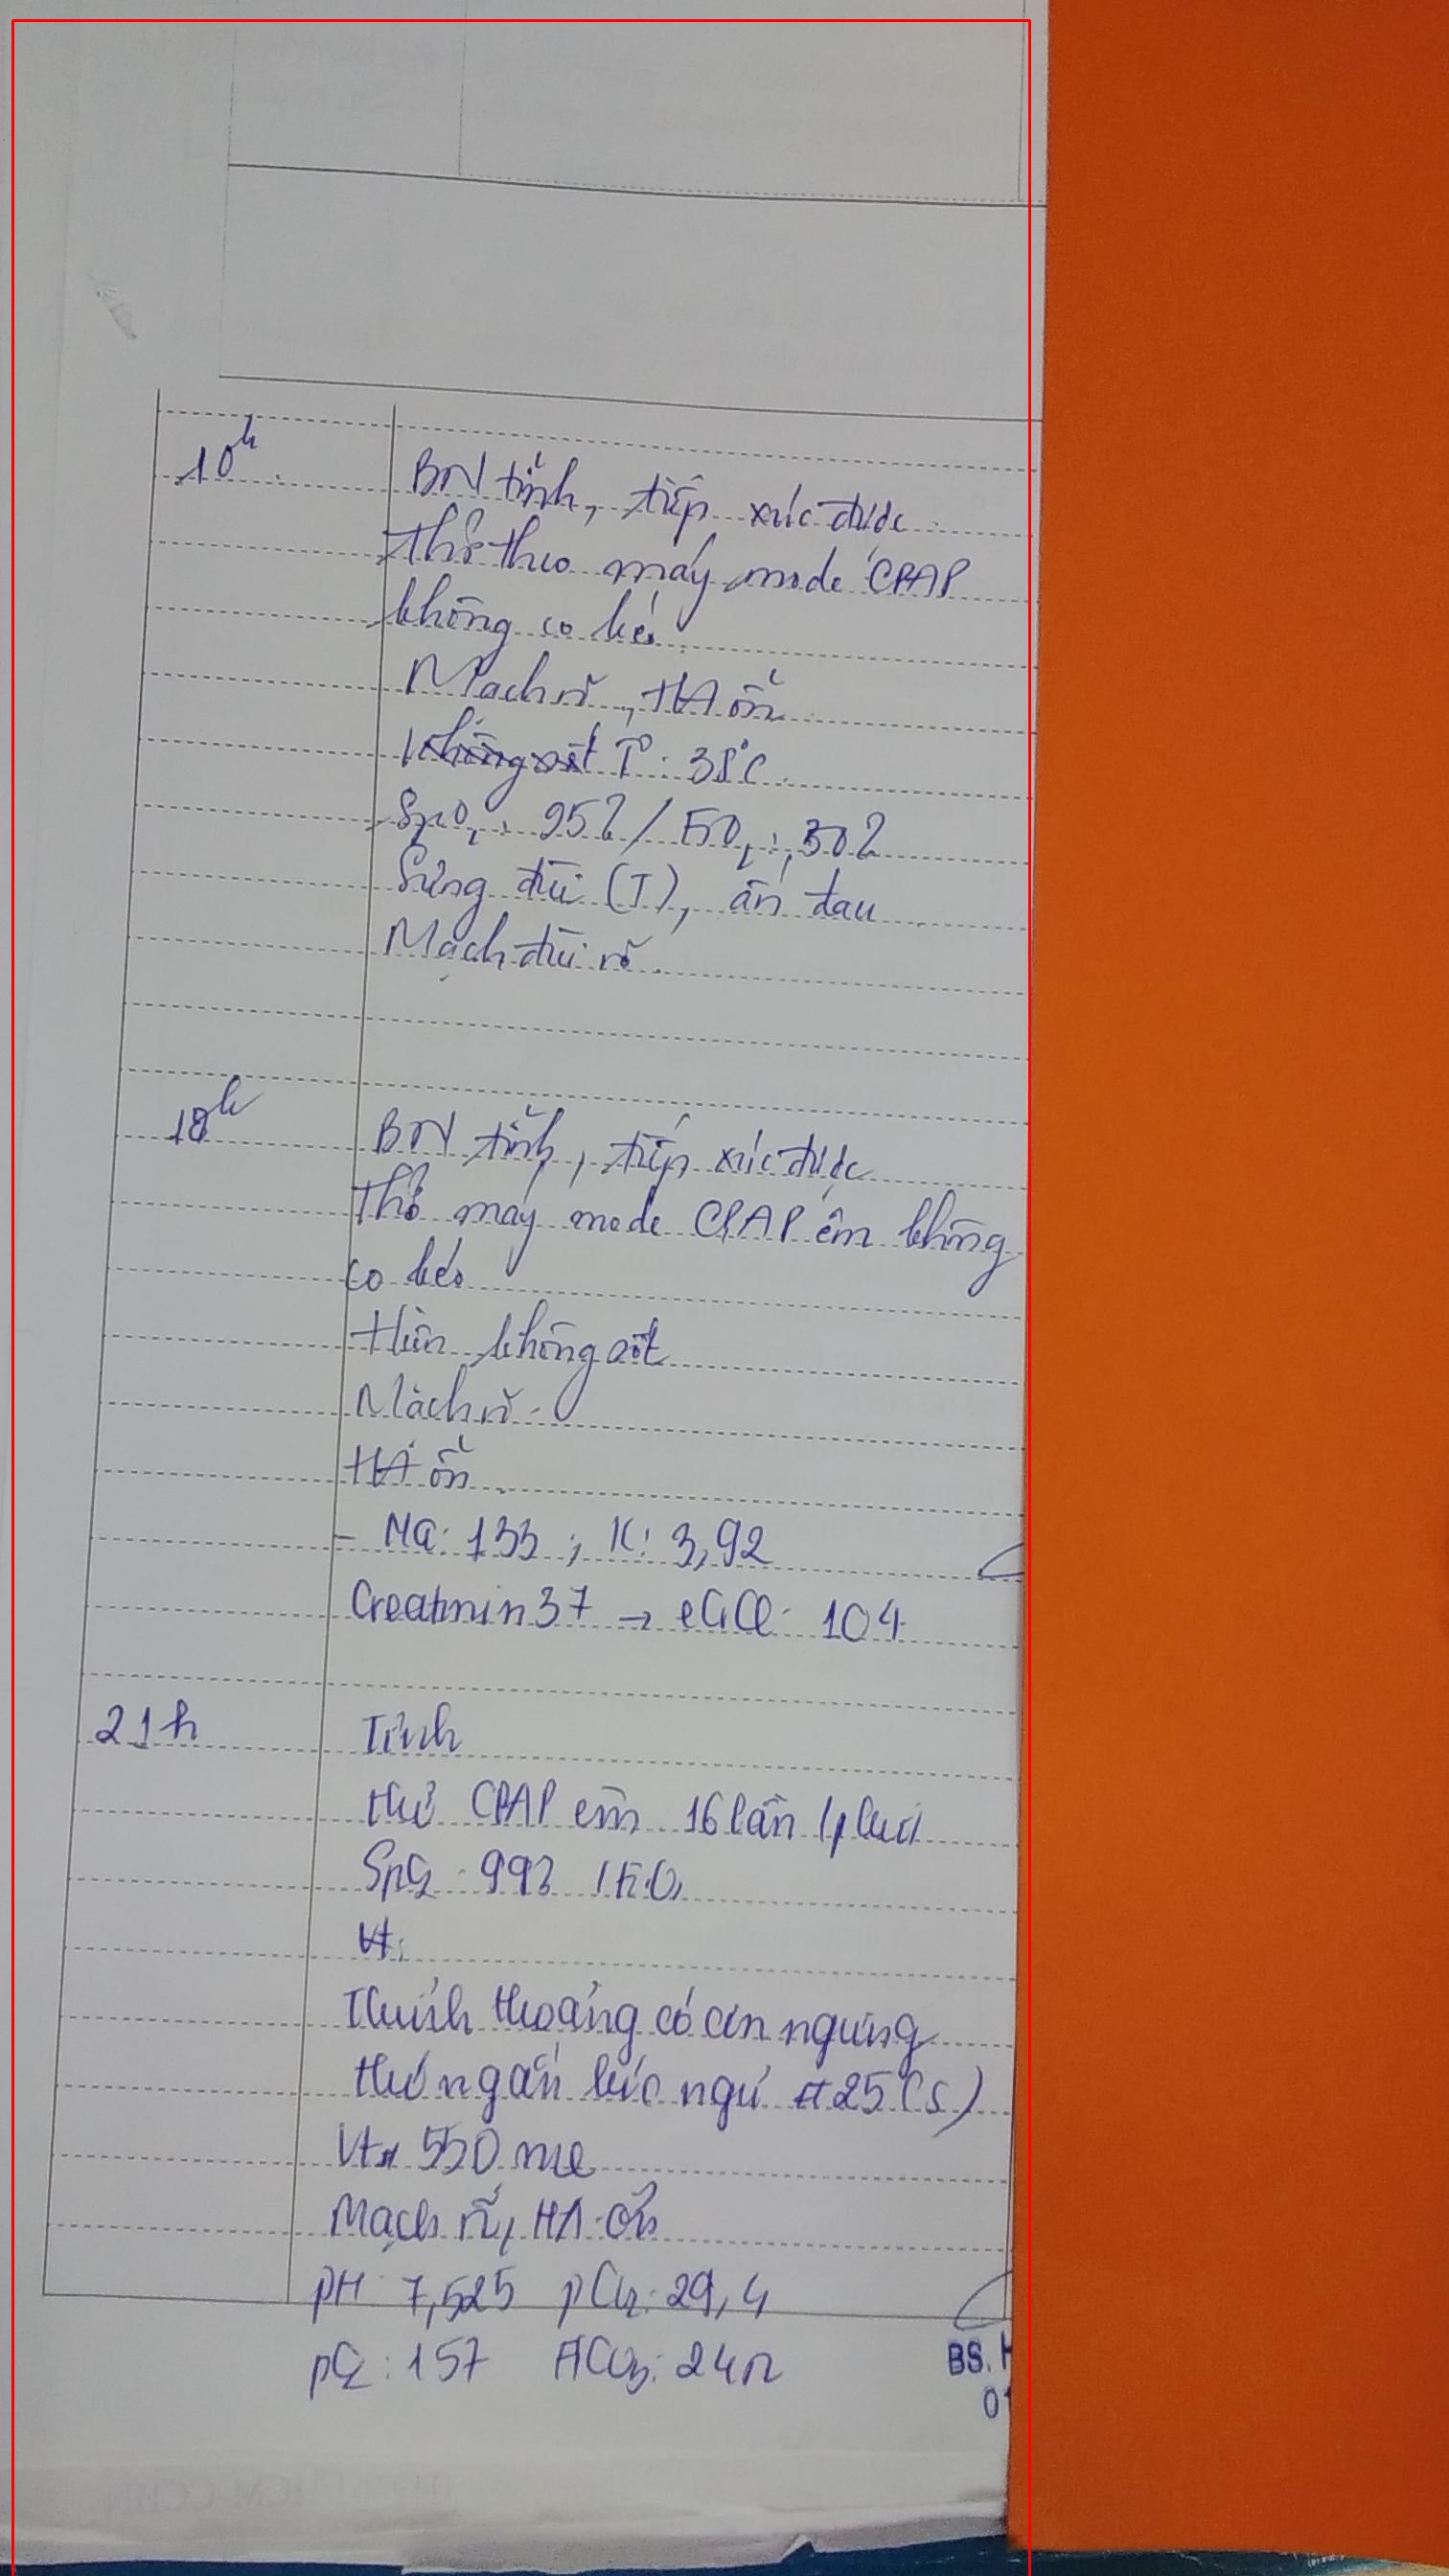 10h
BN tỉnh, tiếp xúc được
Thở theo máy mode CPAP
không co kéo
Mạch rõ, HA ổn
Không sốt T°: 38°C
SpO2: 95% / FiO2: 30%
Sưng đùi (T), ấn đau
Mạch đùi rõ.
18h
BN tỉnh, tiếp xúc được
Thở máy mode CPAP êm không
co kéo
Hiện không sốt
Mạch rõ.
HA ổn
- Na: 133 ; K: 3,92
Creatinin 37 → : 104
21h
Tỉnh
thở CPAP êm 16 lần / phút
SpO2: 99% / FiO2
Vt:
Thỉnh thoảng có cơn ngưng
thở ngắn lúc ngủ # 25 (s)
Vt # 550 ml
Mạch rõ, HA ổn
pH: 7,525 pCO2: 29,4
pO2: 157 HCO3:
BS. H
01